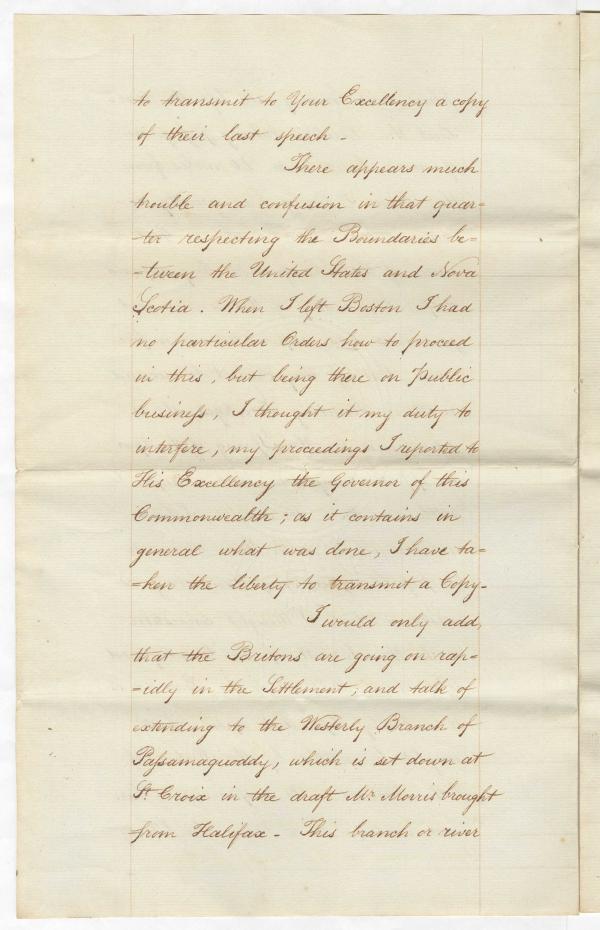 to transmit to Your Excellency a copy
of their last speech -
There appears much
trouble and confusion in that quar-
-ter respecting the Boundaries be-
-tween the United States and Nova
Scotia. When I left Boston I had
no particular Orders how to proceed
in this, but being there on Public
busineſs, I thought it my duty to
interfere, my proceedings I reported to
His Excellency the Governor of this
Commonwealth; as it contains in
general what was done, I have ta-
-ken the liberty to transmit a Copy-
I would only add,
that the Britons are going on rap-
-idly in the Settlement, and talk of
extending to the Westerly Branch of
Paſsamaquoddy, which is set down at
St. Croix in the draft Mr. Morris brought
from Halifax - This branch or river